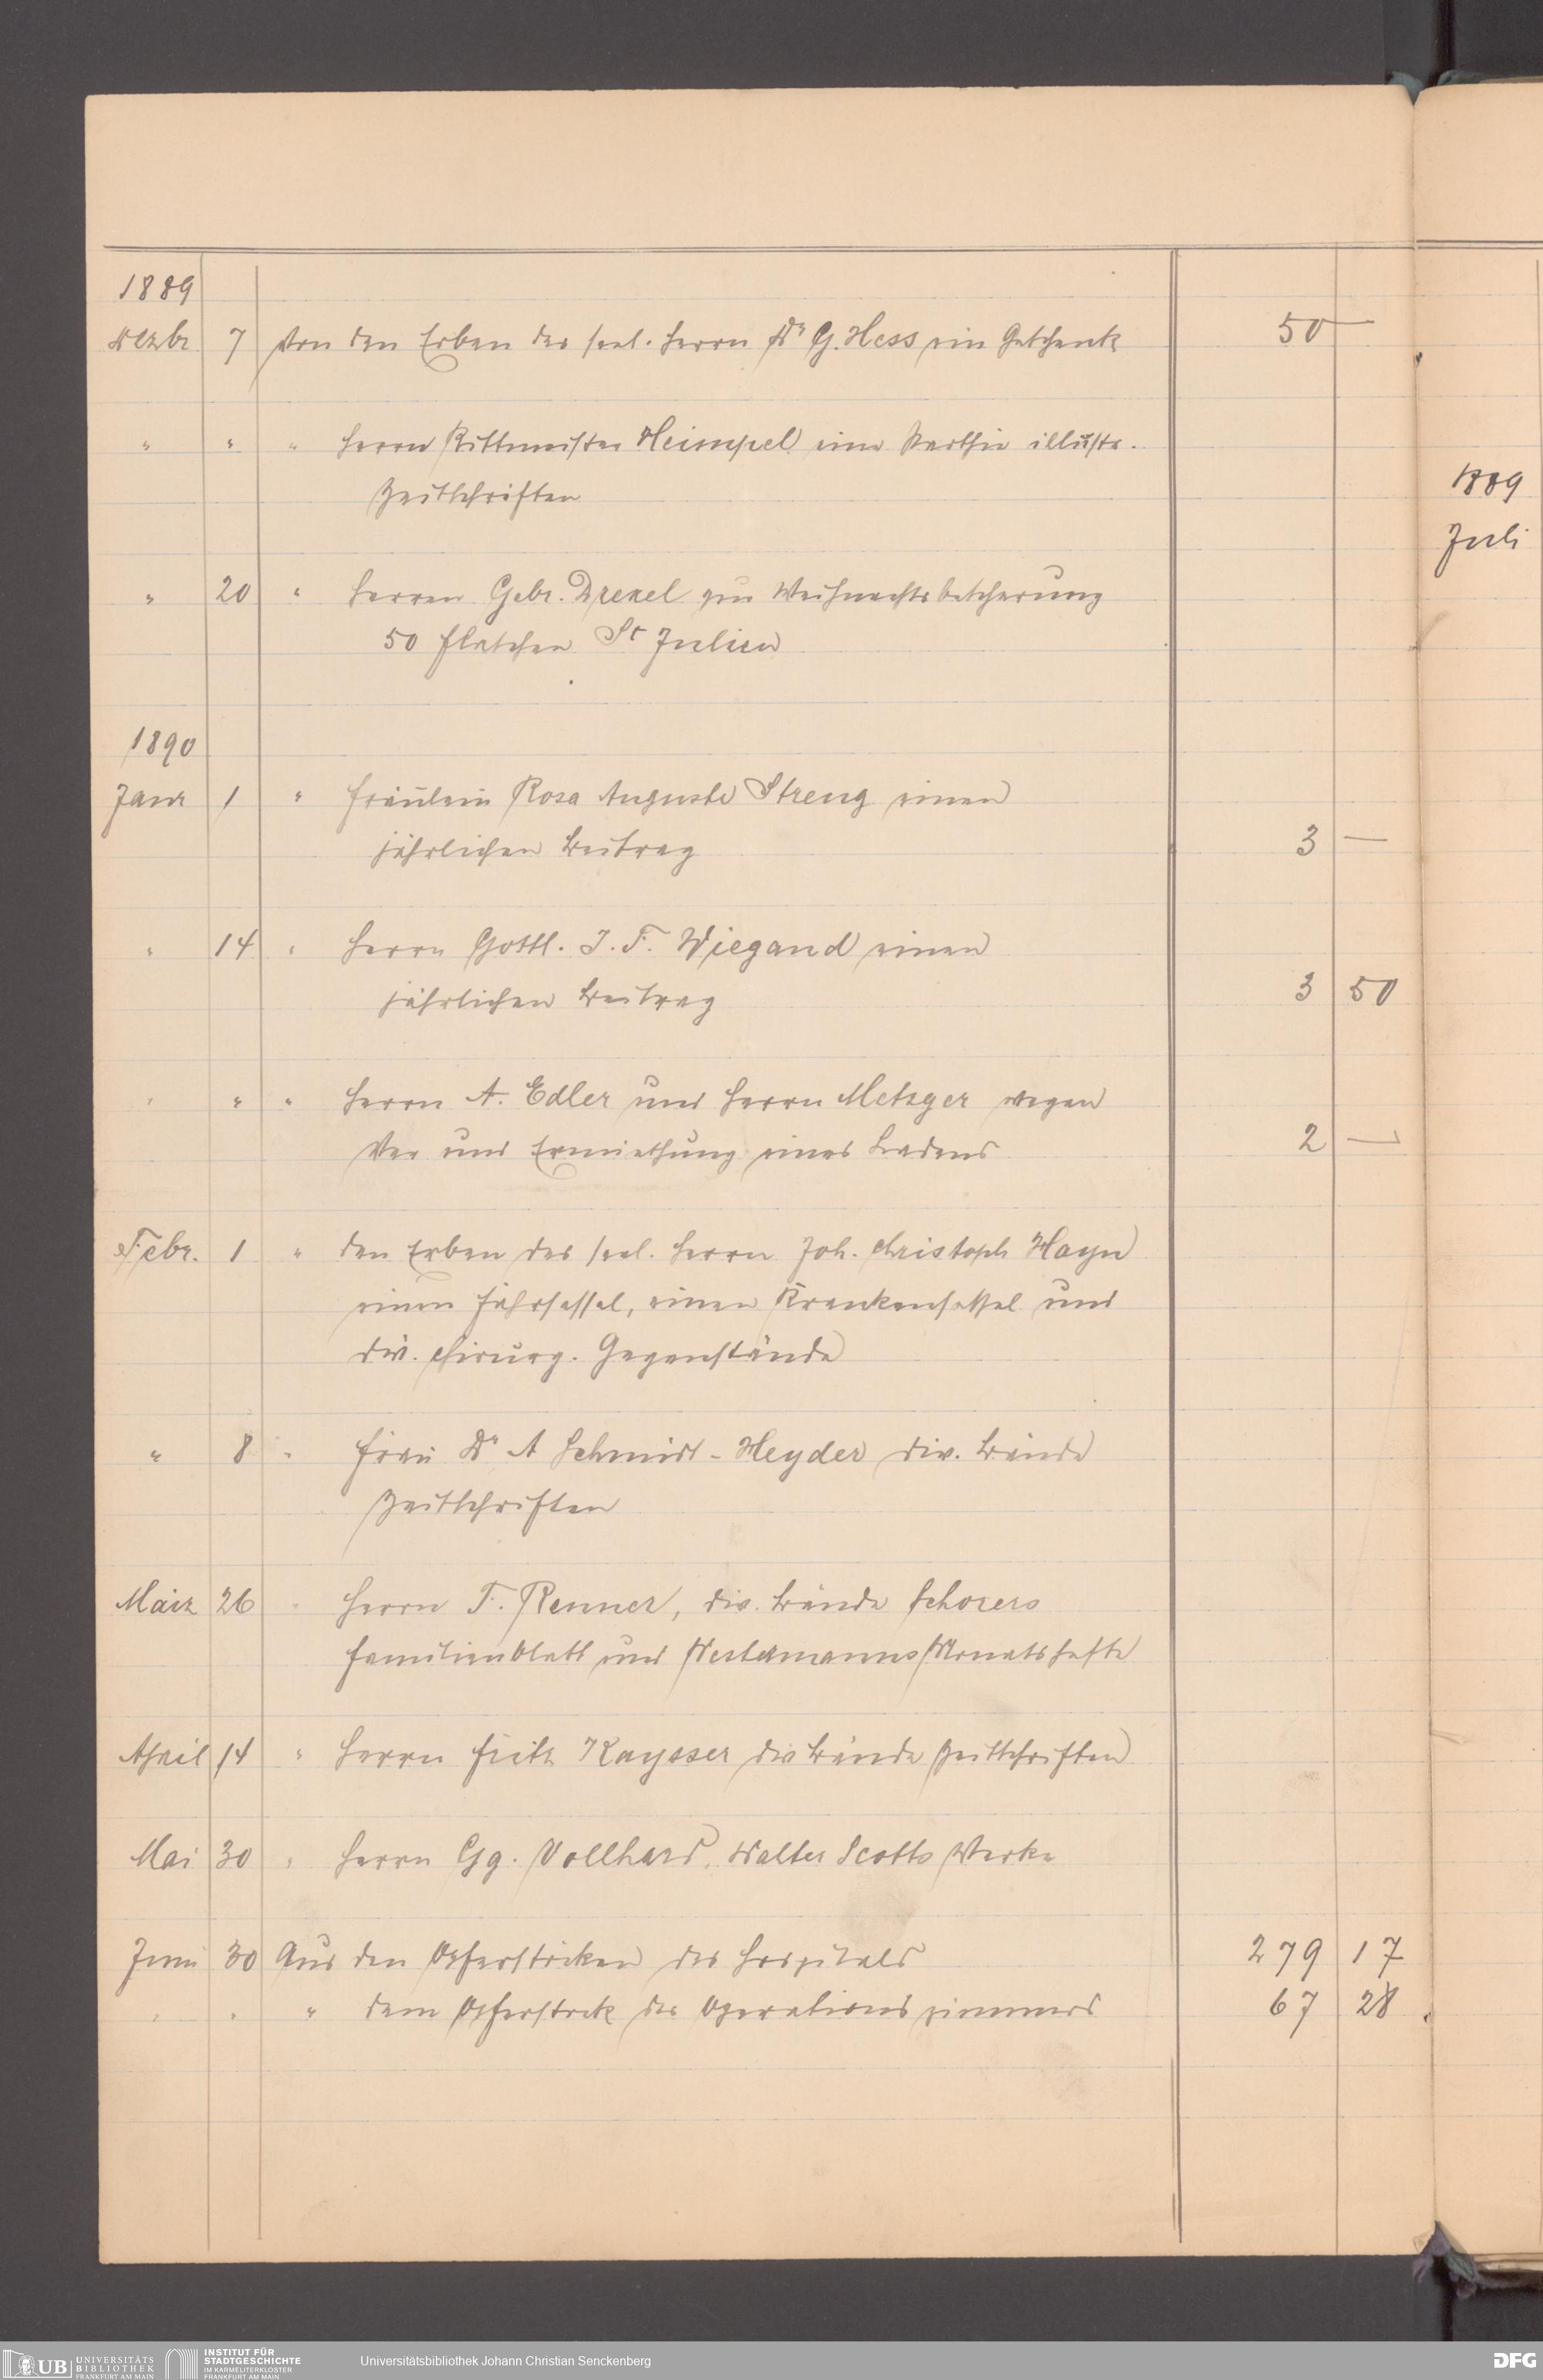 1889
Dezbr 7 Von den Erben des seel. Herrn Dr G. Hess ein Geschenk 50 —
" " " Herrn Rittmeister Heimpel eine Parthie illustr.
Zeitschriften
" 20 " Herren Gebr. Drexel zur Weihnachtsbescherung
50 Flaschen St Julien
1890
Janr 1 " Fräulein Rosa Auguste Streng einen
jährlichen Beitrag 3 —
" 14 " Herrn Gottl. J. F. Wiegand einen
jährlichen Beitrag 3 50
" " " Herrn A. Edler und Herrn Metzger wegen
Ver und Ermiethung eines Ladens 2 —
Febr. 1 " den Erben des seel. Herrn Joh. Christoph Hayn
einen Fahrsessel, einen Krankensessel und
div. chirurg. Gegenstände
" 8 " Frau Dr A Schmidt-Heyder div. Bände
Zeitschriften
März 26 " Herrn F. Renner, div. Bände Schorers
Familienblatt und Westermanns Monatshefte
April 14 " Herrn Fritz Kaysser div Bände Zeitschriften
Mai 30 " Herrn Gg. Vollhard, Walter Scotts Werke
Juni 30 Aus den Opferstöcken des Hospitals 279 17
" " " dem Opferstock des Operationszimmers 67 28
1889
Juli
UB UNIVERSITÄTS
BIBLIOTHEK
FRANKFURT AM MAIN
INSTITUT FÜR
STADTGESCHICHTE
IM KARMELITERKLOSTER
FRANKFURT AM MAIN
Universitätsbibliothek Johann Christian Senckenberg
DFG